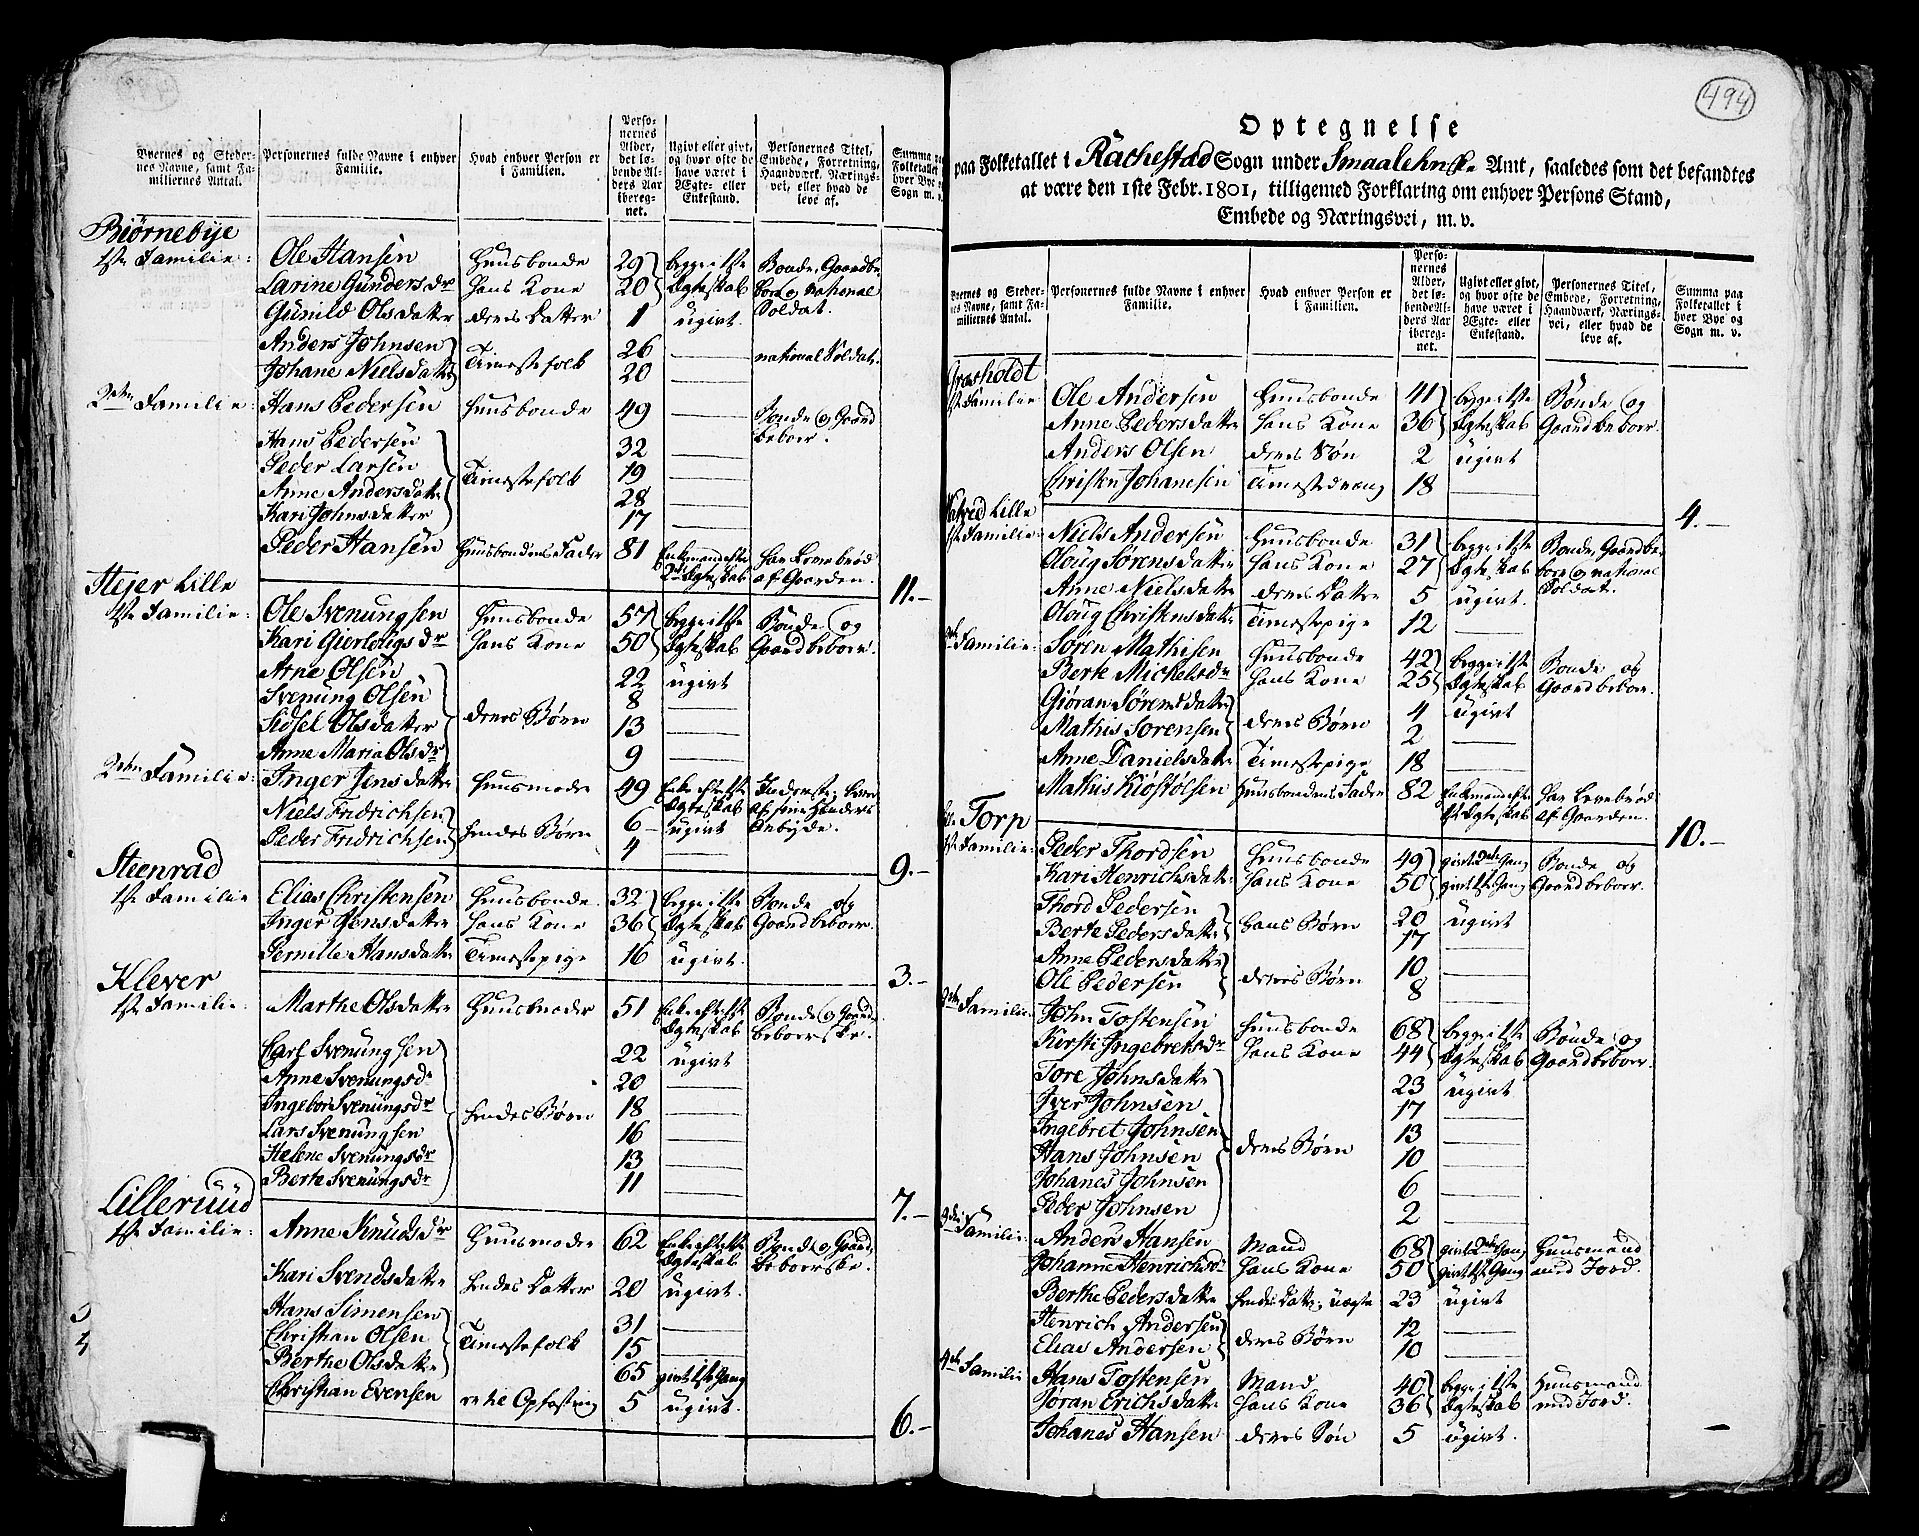 Byernes og Steder-
nes Navne, samt Fa-
miliernes Antal.
Personernes fulde Navne i enhver
Familie.
Hvad enhver Person er
i Familien.
Perso-
nernes
Alder,
det lø-
bende Al-
ders Aar
ibereg-
net.
Ugivt eller givt,
og hvor ofte de
have været i
Ægte- eller
Enkestand.
Personernes Titel,
Embede, Forretning,
Haandværk, Nærings-
vei, eller hvad de
leve af.
Summa paa
Folketallet
hver Bye og
Sogn m. v.
Biørnebye
1ste Familie: Ole Hansen Huusbonde 29 begge i 1ste Bonde, Gaardbe-
Larine Gunders dr hans Kone 20 Ægteskab boer og national
Gunild Olsdatter deres Datter 1 ugivt. Soldat.
Anders Johnsen Tienestefolk 26 — national Soldat.
Johane Nielsdatter 20 —
2den Familie: Hans Pedersen Huusbonde 49 — Bonde og Gaard
beboer.
Hans Pedersen 32 —
Peder Larsen Tienestefolk 19 —
Anne Andersdatter 28 —
Kari Johnsdatter 17 —
Peder Hansen Huusbondens Fader 81 Enkemand efter har Levebrød
2det Ægteskab af Gaarden.
11.-
Stejer Lille
1ste Familie: Ole Svenungsen Huusbonde 57 begge i 1ste Bonde og
Kari Gierlougs dr hans Kone 50 Ægteskab Gaardbeboer.
Arne Olsen 22 ugivt
Svenung Olsen deres Børn 8 —
Sidsel Olsdatter 13 —
Anne Maria Olsdr 9 —
2den Familie: Inger Jensdatter Huusmoder 49 Enke efter 1ste
Ægteskab
Niels Fridrichsen hendes Børn 6 ugivt
Peder Fridrichsen 4 —
9.-
Steenrad
1ste Familie Elias Christensen Huusbonde 32 begge i 1ste Bonde og
Inger Jensdatter hans Kone 36 Ægteskab Gaardbeboer.
Pernille Hansdatter Tienestepige 16 ugivt.
3.-
Klever
1ste Familie: Marthe Olsdatter Huusmoder 51 Enke efter 1ste Bonde og Gaard-
Ægteskab beboerske.
Carl Svenungsen 22 ugivt
Anne Svenungsdr 20 —
Ingebor Svenungsdr hendes Børn 18 —
Lars Svenungsen 16 —
Helene Svenungsdr 13 —
Berte Svenungsdr 11 —
7.-
Lilleruud
1ste Familie: Anne Knudsdr Huusmoder 62 Enke efter 1ste Bonde og Gaard-
Ægteskab beboerske.
Kari Svendsdatter hendes Datter 20 ugivt.
Hans Simensen 31 —
Christian Olsen Tienestefolk 15 —
Berthe Olsdatter 65 givt 1ste Gang
Christian Evensen 5 ugivt.
6.-
494
Optegnelse
paa Folketallet i Rachestad Sogn under Smaalehnske Amt, saaledes som det befandtes
at være den 1ste Febr. 1801, tilligemed Forklaring om enhver Persons Stand,
Embede og Næringsvei, m. v.
Byernes og Steder-
nes Navne, samt Fa-
miliernes Antal.
Personernes fulde Navne i enhver
Familie.
Hvad enhver Person er
i Familien.
Perso-
nernes
Alder,
det lø-
bende Al-
ders Aar
ibereg-
net.
Ugivt eller givt,
og hvor ofte de
have været i
Ægte- eller
Enkestand.
Personernes Titel,
Embede, Forretning,
Haandværk, Nærings-
vei, eller hvad de
leve af.
Summa paa
Folketallet i
hver Bye og
Sogn m. v.
1ste Familie Ole Andersen Huusbonde 41 begge i 1ste Bonde og
Anne Pedersdatter hans Kone 36 Ægteskab Gaardbeboer.
Anders Olsen deres Søn 2 ugivt
Christen Johanesen Tienestedreng 18 —
4.-
Lille
1ste Familie: Niels Andersen Huusbonde 31 begge i 1ste Bonde, Gaardbe-
Oloug Sørensdatter hans Kone 27 Ægteskab boer og national
Anne Nielsdatter deres Datter 5 ugivt. Soldat.
Oloug Christensdatter Tienestepige 12 —
2den Familie: Søren Mathisen Huusbonde 42 begge i 1ste Bonde og
Berte Mickelsdr hans Kone 25 Ægteskab Gaardbeboer.
Giøran Sørensdatter deres Børn 4 ugivt
Mathis Sørensen 2 —
Anne Danielsdatter Tienestepige 18 —
Mathis Kiøstølsen Huusbondens Fader 82 Enkemand efter har Levebrød
1ste Ægteskab af Gaarden.
10.-
Torp
1ste Familie: Peder Thordsen Huusbonde 49 givt 2den Gang Bonde og
Kari Henrichsdatter hans Kone 50 givt 1ste Gang Gaardbeboer.
Thord Pedersen hans Børn 20 ugivt
Berte Pedersdatter 17 —
Anne Pedersdatter deres Børn 10 —
Ole Pedersen 8 —
2den Familie: John Tostensen Huusbonde 68 begge i 1ste Bonde og
Kirsti Ingebretsdr hans Kone 44 Ægteskab Gaardbeboer.
Tore Johnsdatter 23 ugivt
Iver Johnsen 17 —
Ingebret Johnsen deres Børn 13 —
Hans Johnsen 10 —
Johanes Johnsen 6 —
Peder Johnsen 2 —
3die Familie: Anders Hansen Mand 68 givt 2den Gang Huusmand
Johanne Henrichsdr hans Kone 50 givt 1ste Gang med Jord.
Berthe Pedersdatter hendes Datter, uægte 23 ugivt
Henrich Andersen deres Børn 12 —
Elias Andersen 10 —
4de Familie Hans Tostensen Mand 40 begge i 1ste Huusmand
Jøran Erichsdatter hans Kone 36 Ægteskab med Jord.
Johanes Hansen deres Søn 5 ugivt.